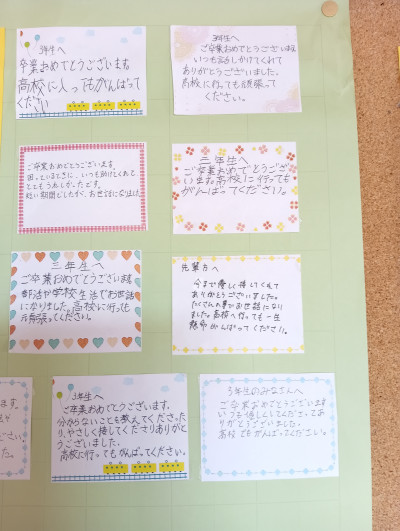 3年生へ
卒業おめでとうございます。
高校に入ってもがんばって
ください
3年生へ
ご卒業おめでとうございます。
いつも話しかけてくれて
ありがとうございました。
高校に行っても頑張って
ください。
ご卒業おめでとうございます。
困っているときに、いつも助けてくれて、
とてもうれしかったです。
短い期間でしたが、お世話になりました
三年生へ
ご卒業おめでとうござ
います。高校に行っても
がんばってください。
三年生へ
ご卒業おめでとうございます。
部活や学校生活でお世話
になりました。高校に行っても
頑張ってください。
先輩方へ
今まで優しく接してくれて
ありがとうございました。
たくさんの事でお世話になり
ました。高校へ行っても一生
懸命がんばってください。
3年生へ
ご卒業おめでとうございます。
分からないことも教えてくださった
り、やさしく接してくださりありがと
うございました。
高校に行ってもがんばってください。
3年生のみなさんへ
ご卒業おめでとうございます
いつも優しくしてくださってあ
りがとうございました。
高校でもがんばってください。
ださい
た。